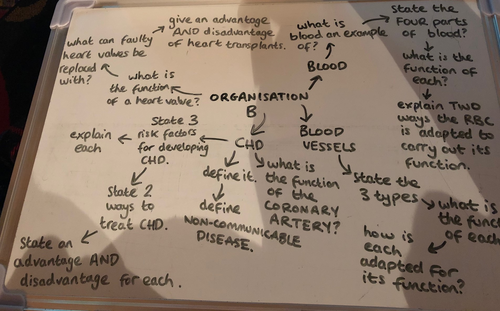 ORGANISATION
B
what is
the function
of a heart valve?
what can faulty
heart valves be
replaced
with?
give an advantage
AND disadvantage
of heart transplants.
BLOOD
what is
blood an example
of?
State the
FOUR parts
of blood?
what is
the function
of each?
explain TWO
ways the RBC
is adapted to
carry out its
function.
BLOOD
VESSELS
State the
3 types
what is
the funct
of each
how is
each
adapted for
its function?
CHD
what is
the function
of the
CORONARY
ARTERY?
define it.
define
NON-COMMUNICABLE
DISEASE.
State 3
risk factors
for developing
CHD.
explain
each
State 2
ways to
treat CHD.
State an
advantage AND
disadvantage for each.